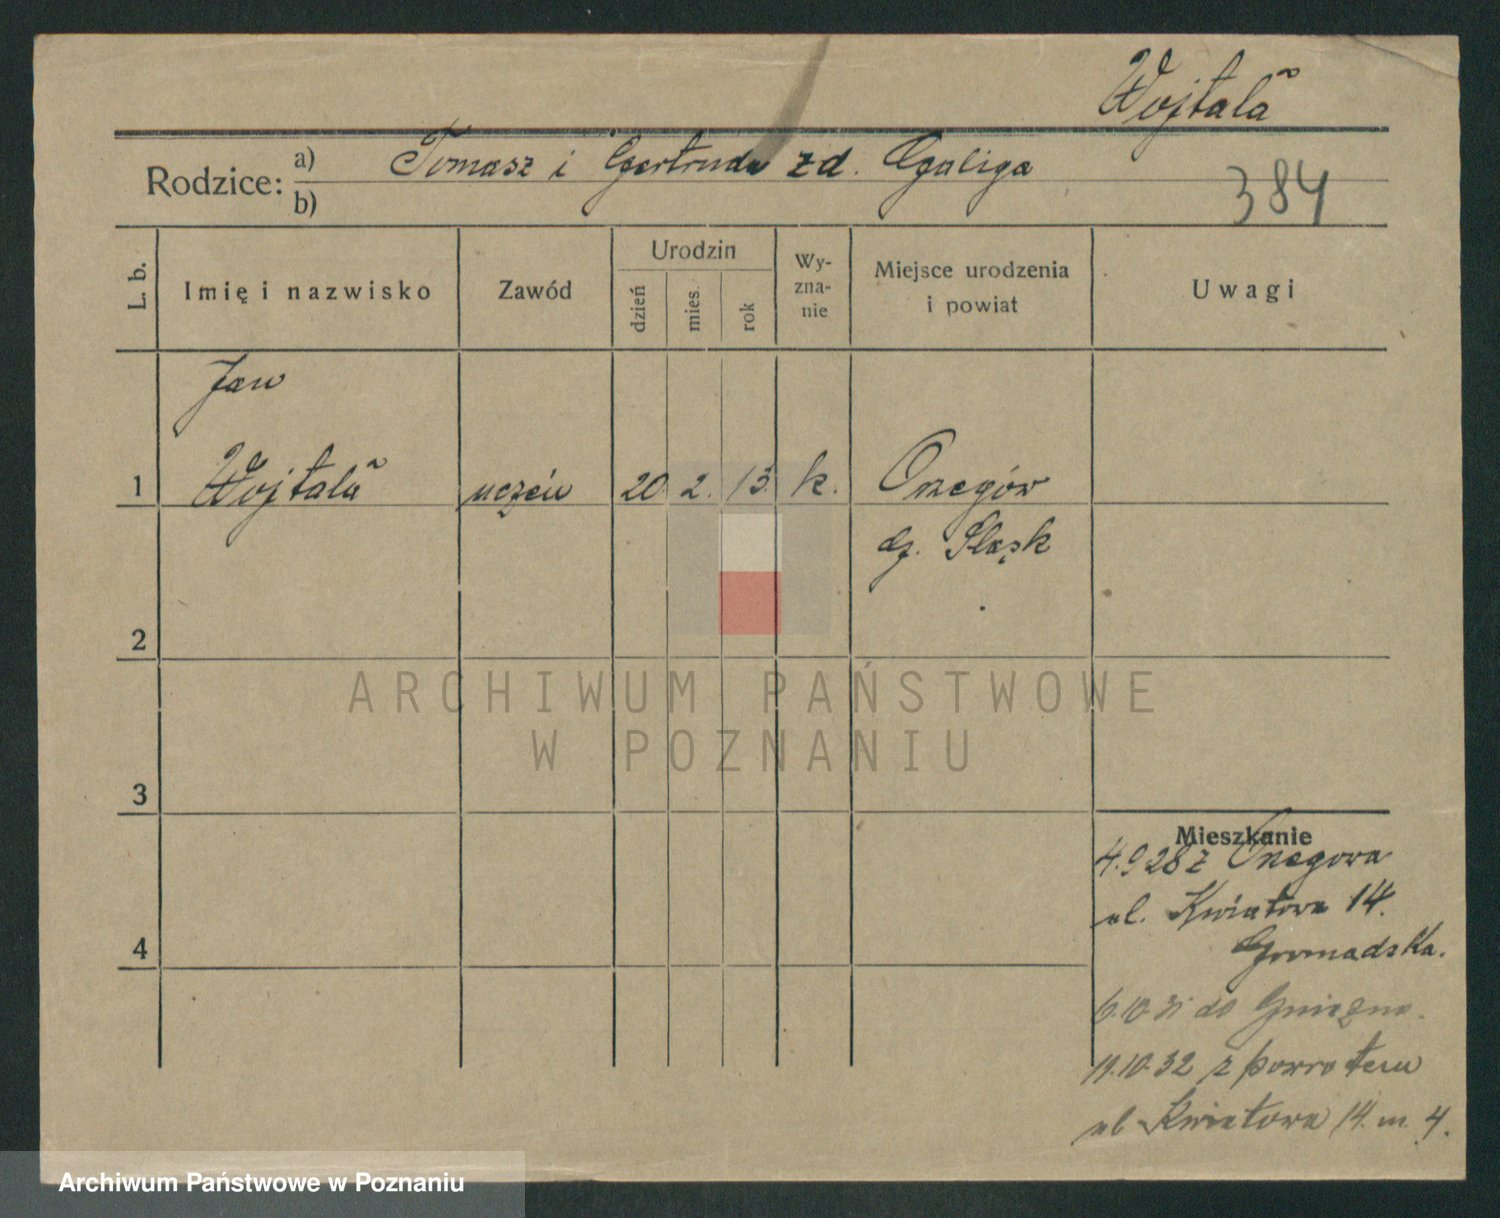 Wojtala
Rodzice: a) Tomasz i Gertruda zd. Galiga
b)
384
L. b.
Imię i nazwisko
Zawód
Urodzin
dzień
mies.
rok
Wy-
zna-
nie
Miejsce urodzenia
i powiat
Uwagi
Jan
1 Wojtala uczeń 20 2. 13. k. Orzegów
g. Śląsk
2
3
4
Mieszkanie
4.9 28 z Orzegowa
ul. Kwiatowa 14.
Gromadska.
6.10 31 do Gniezna.
11.10.32 z powrotem
ul Kwiatowa 14. m. 4.
ARCHIWUM PAŃSTWOWE
W POZNANIU
Archiwum Państwowe w Poznaniu